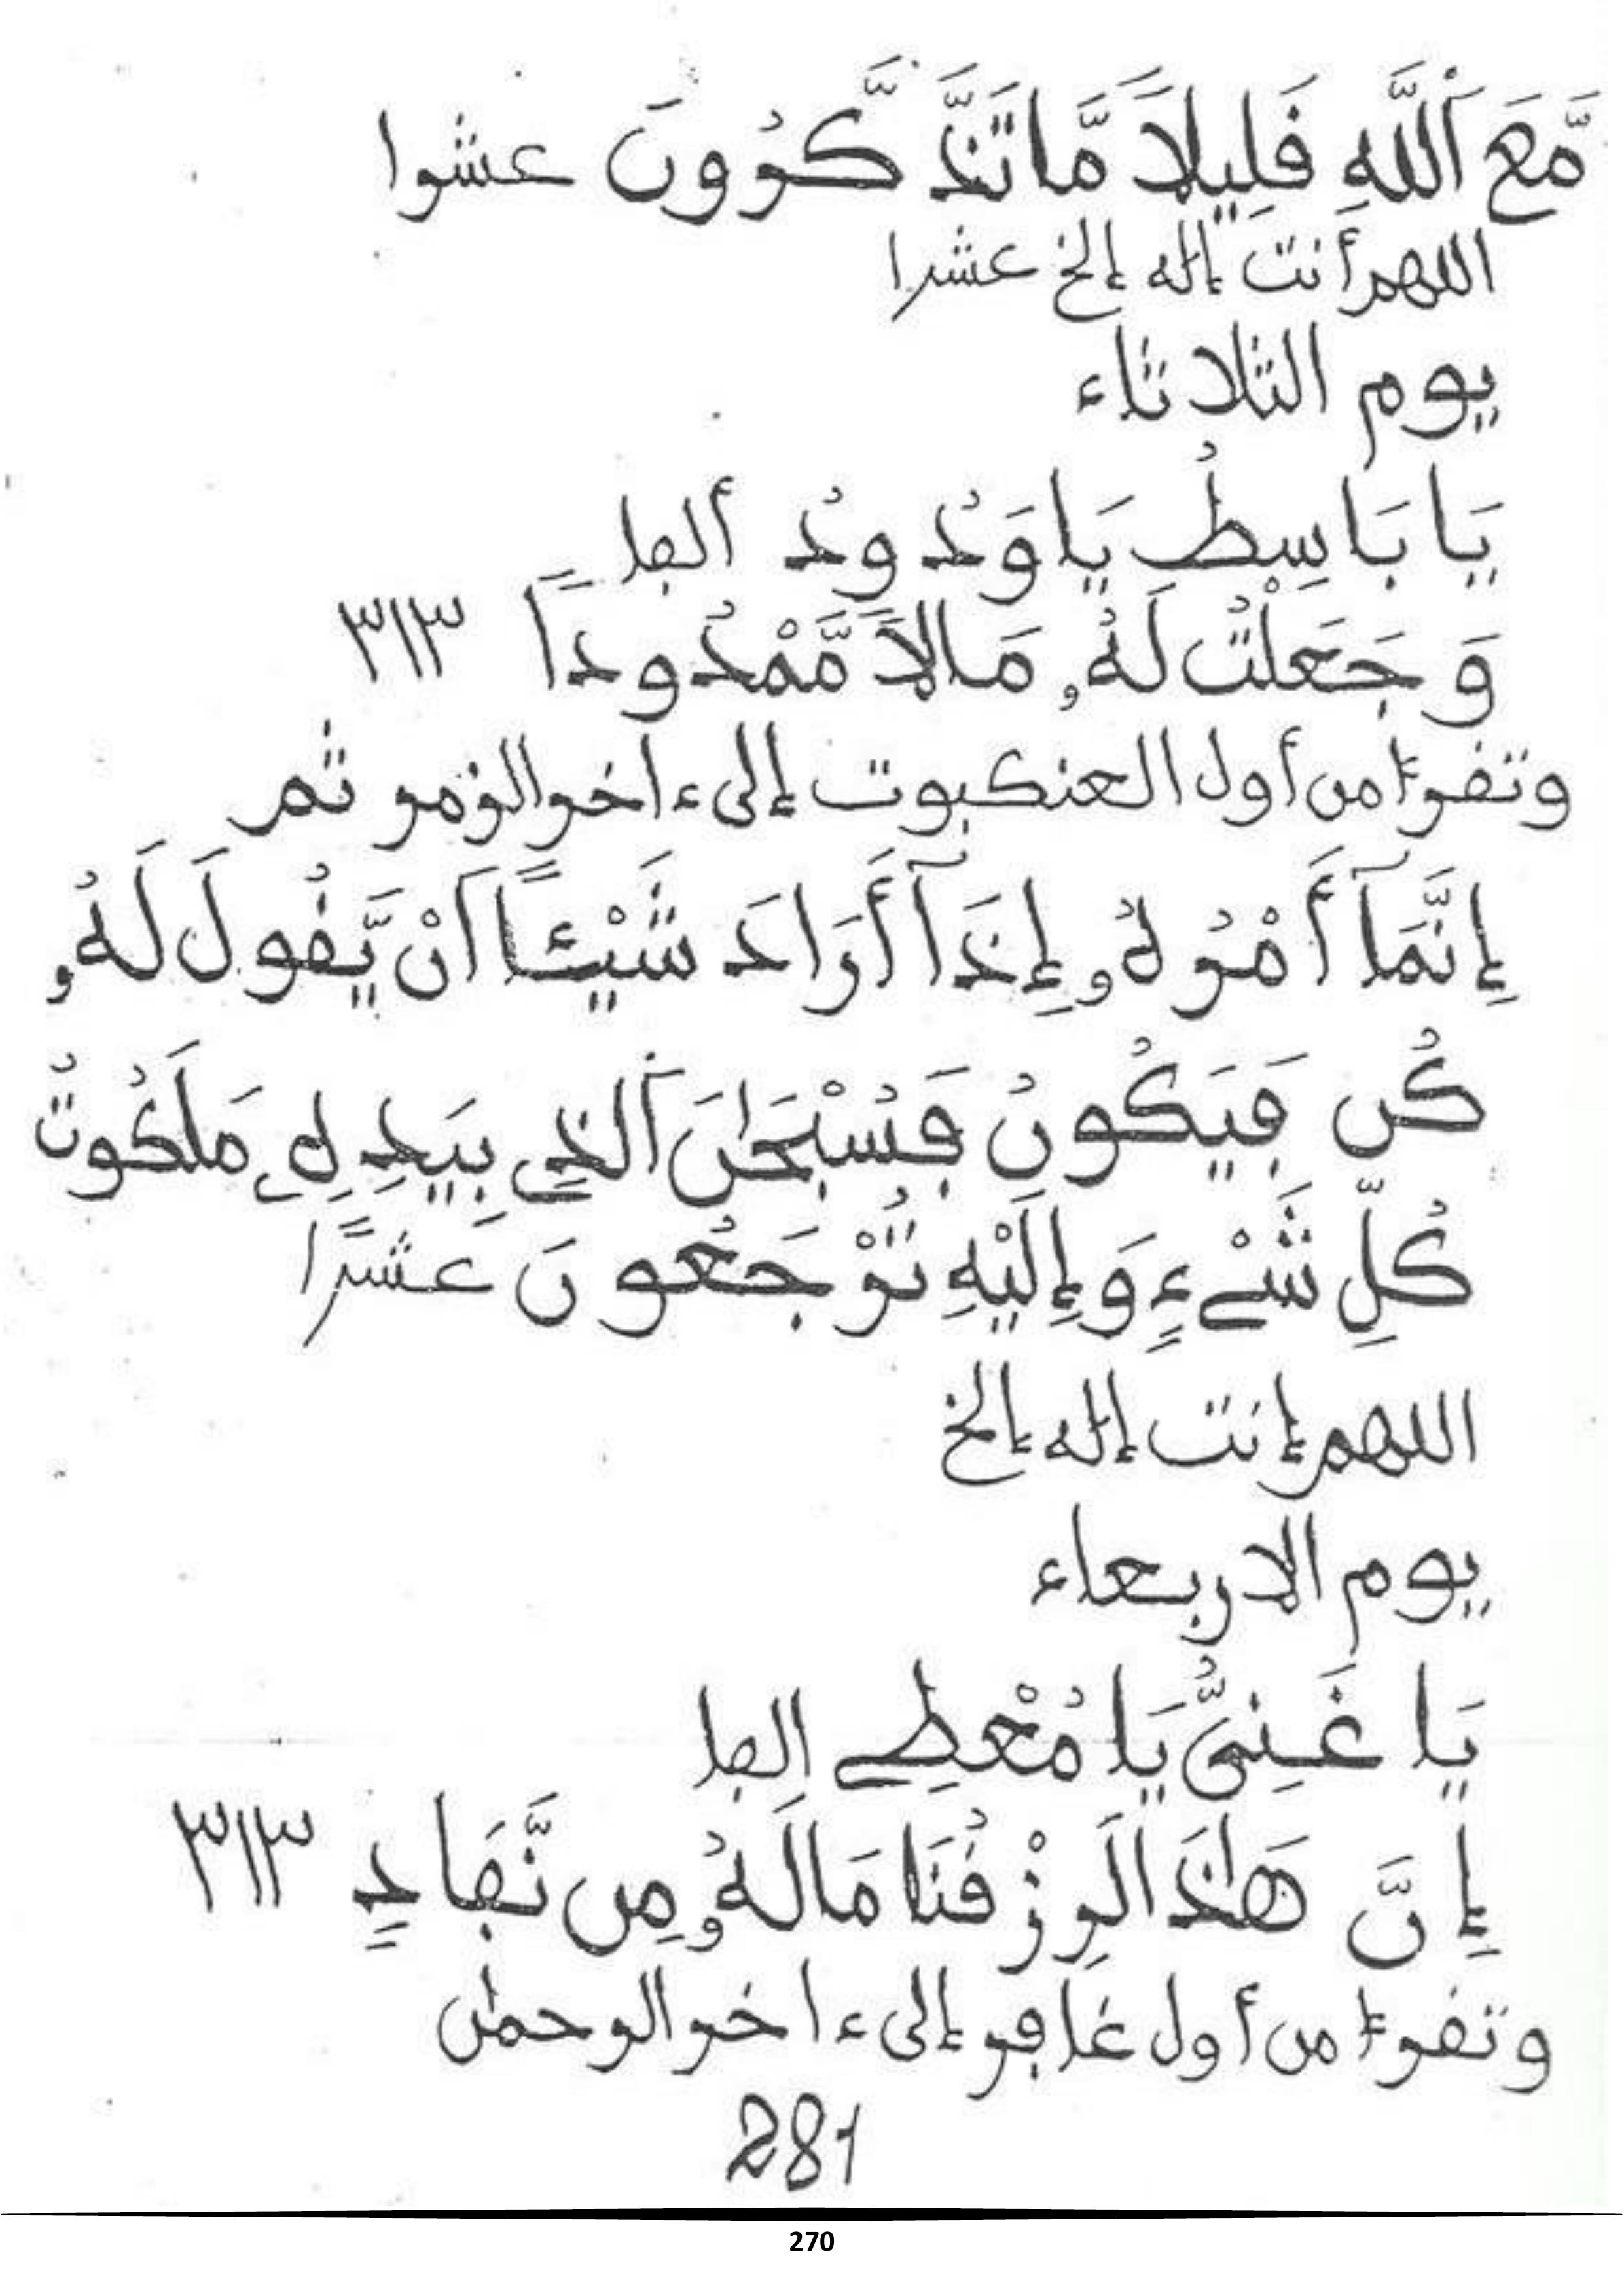 مَّعَ ٱللَّهِ قَلِيلاً مَّا تَذَّكَّرُونَ عشرا
اللهم أنت إله إلخ عشرا
يوم الثلاثاء
يَا بَاسِطُ يَا وَدُودُ ألفا
وَجَعَلْتُ لَهُۥ مَالاً مَّمْدُوداً ٣١٣
وتقرءا من أول العنكبوت إلى ءاخر الزمر ثم
إِنَّمَآ أَمْرُهُۥ إِذَآ أَرَادَ شَيْـًٔا اَنْ يَّقُولَ لَهُۥ
كُن فَيَكُونُ فَسُبْحَٰنَ ٱلذِے بِيَدِهِۦ مَلَكُوتُ
كُلِّ شَےْءٍ وَإِلَيْهِ تُرْجَعُونَ عشرًا
اللهم إنت إله إلخ
يوم الاربعاء
يَا غَنِىُّ يَا مُعْطِے الفا
إِنَّ هَٰذَا لَرِزْقُنَا مَا لَهُۥ مِن نَّفَادٍ ٣١٣
وتقرءا من أول غافر إلى ءاخر الرحمٰن
281
270